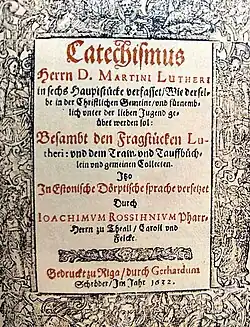 Catechismus
Herrn D. MARTINI LUTHERI
in sechs Hauptstücke verfasset/ Wie dersel-
be in der Christlichen Gemeine/ und fürnemb-
lich unter der lieben Jugend ge-
übet werden sol:
Besambt den Fragstücken Lu-
theri: und dem Traw- und Tauffbüch-
lein und gemeinen Collecten.
Itzo
In Estonische Dörptische sprache versetzet
Durch
IOACHIMVM ROSSIHNIVM Pfarr-
Herrn zu Theall/ Caroll und
Felcke.
Gedruckt zu Riga/ durch Gerhardum
Schröder/ Im Jahr 1632.